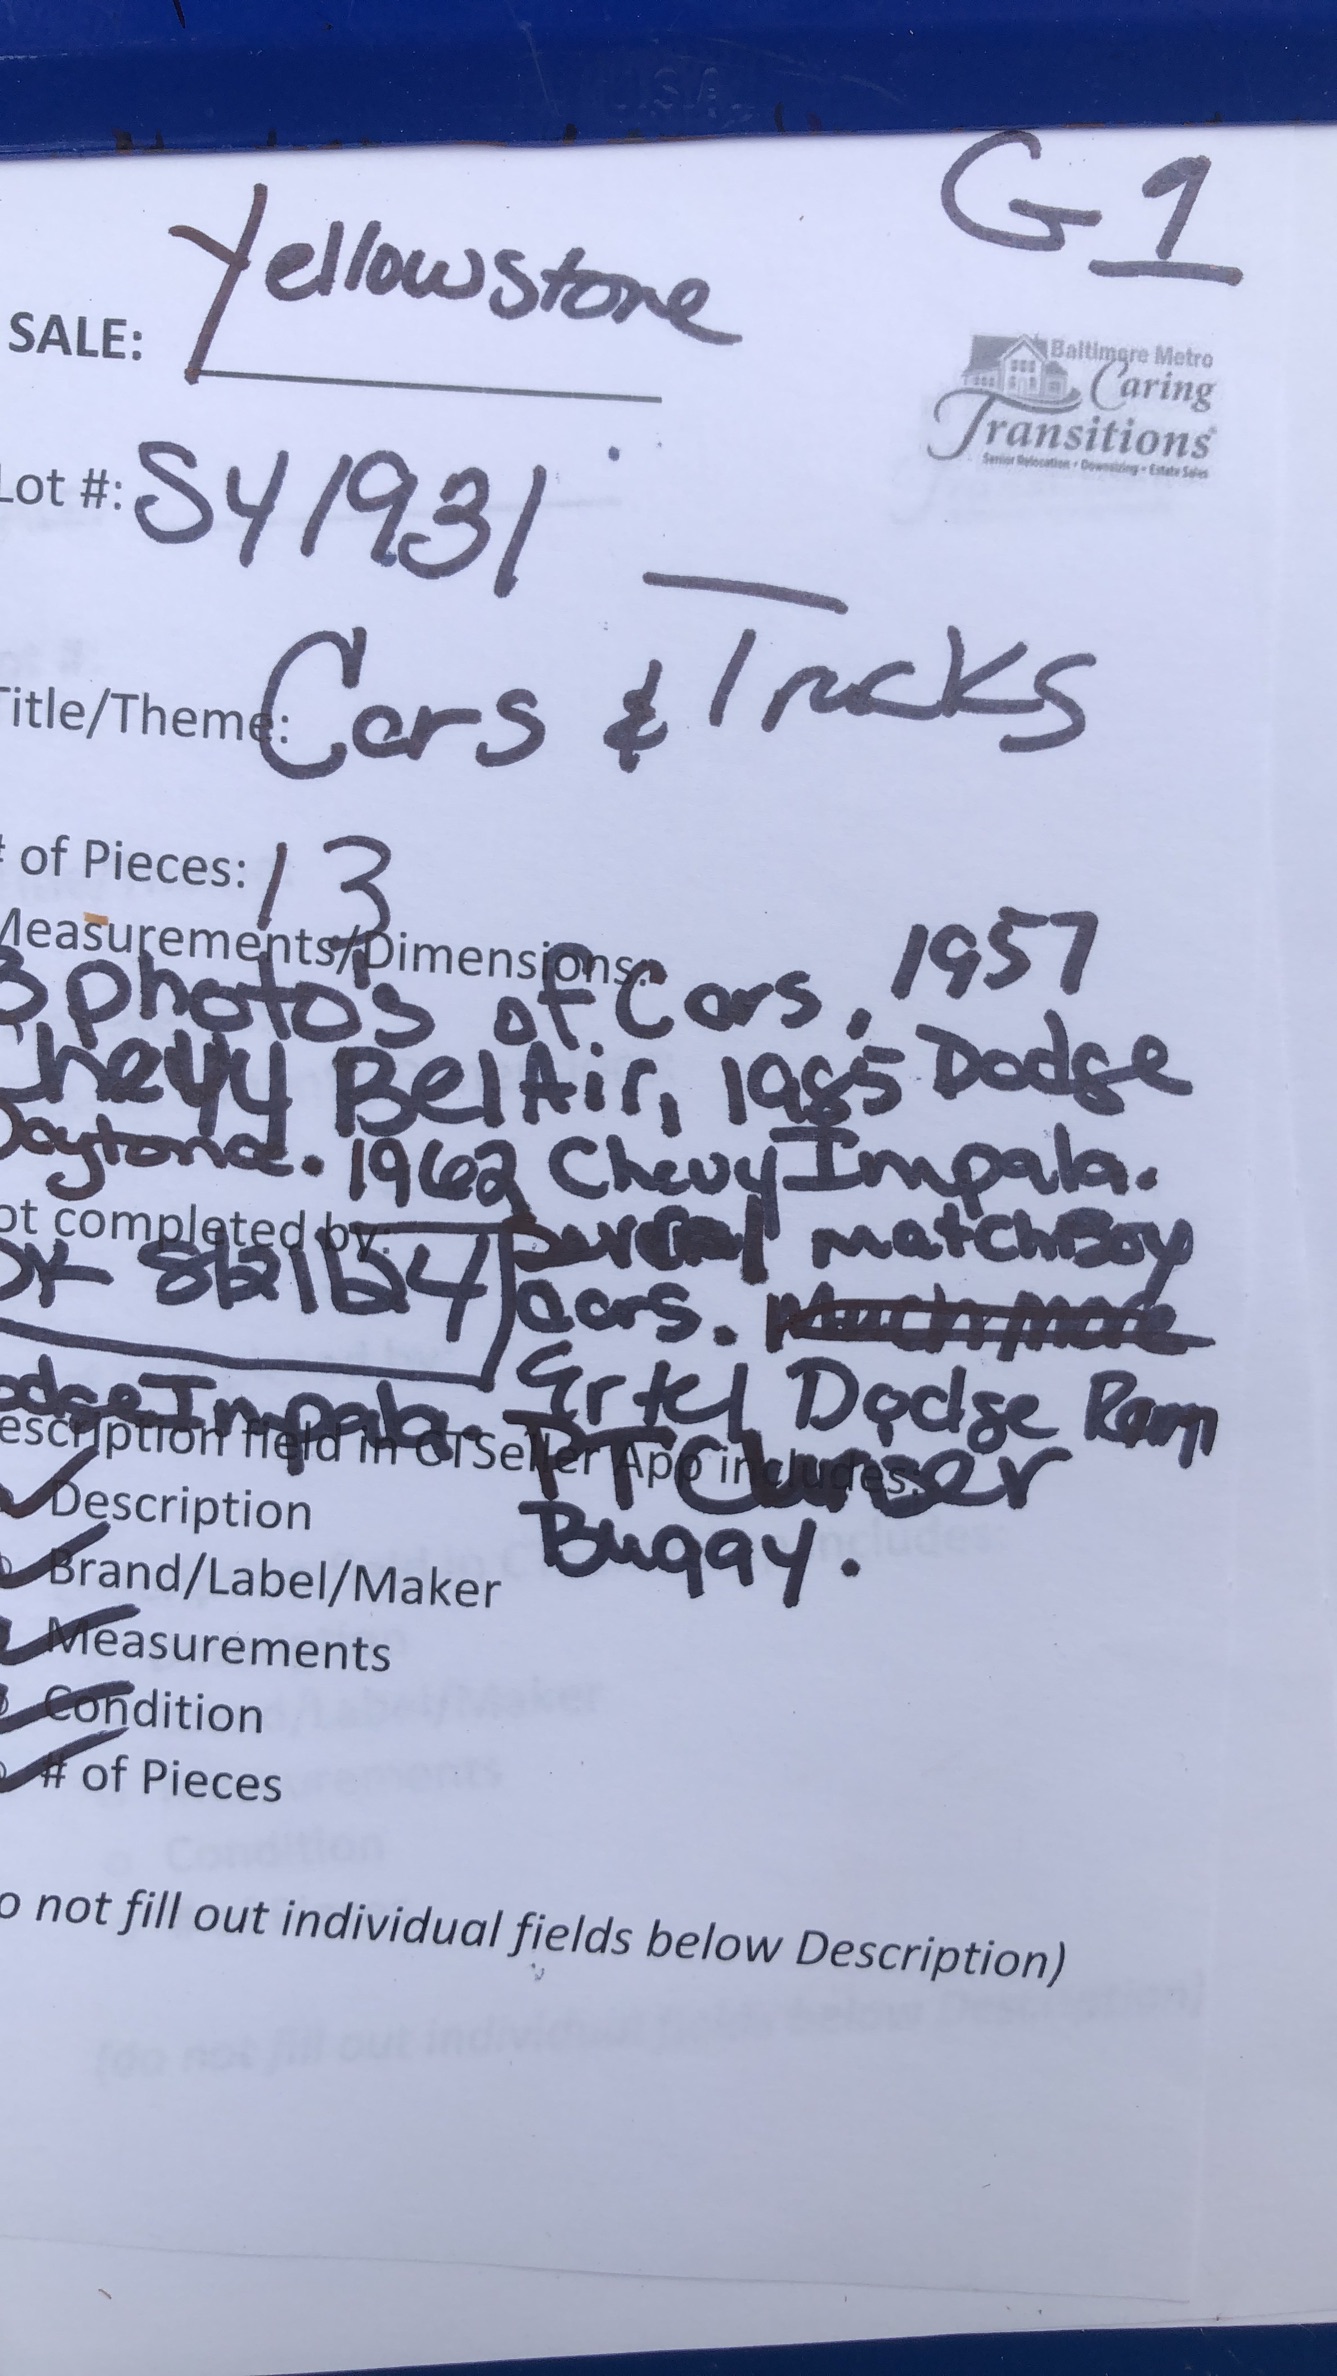 G1
SALE: Yellowstone
Baltimore Metro
Caring
Transitions
Senior Relocation • Downsizing • Estate Sales
Lot #: S41931
Title/Theme: Cars & Trucks
# of Pieces: 13
Measurements/Dimensions:
3 photo's of Cars, 1957
Chevy BelAir, 1985 Dodge
Daytona. 1962 Chevy Impala.
ot completed by:
several matchBoy
DK 82124
cars.
odge Impala. Ertel Dodge Ram
escription field in CTSeller App includes:
PT Cruiser
Description
Buggy.
Brand/Label/Maker
Measurements
Condition
# of Pieces
o not fill out individual fields below Description)